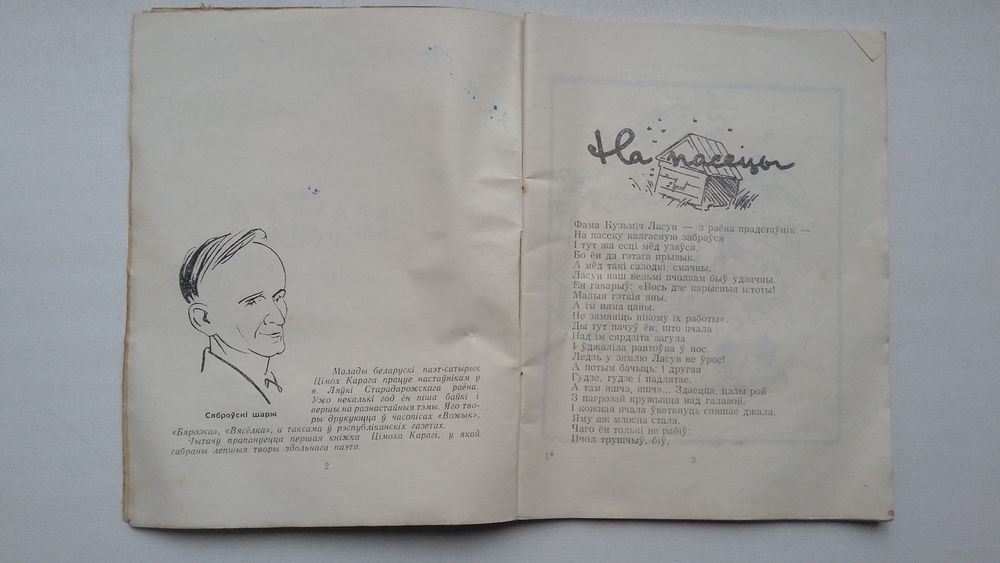 Сяброўскі шарж
Малады беларускі паэт-сатырык
Цімох Карага працуе настаўнікам у
в. Ляўкі Старадарожскага раёна.
Ужо некалькі год ён піша байкі і
вершы на разнастайныя тэмы. Яго тво-
ры друкуюцца ў часопісах «Вожык»,
«Бярозка», «Вясёлка», а таксама ў рэспубліканскіх газетах.
Чытачу прапануецца першая кніжка Цімоха Карагі, у якой
сабраны лепшыя творы здольнага паэта.
2
На пасецы
Фама Кузьміч Ласун — з раёна прадстаўнік —
На пасеку калгасную забраўся
І тут жа есці мёд узяўся,
Бо ён да гэтага прывык.
А мёд такі салодкі, смачны,
Ласун наш вельмі пчолкам быў удзячны.
Ён гаварыў: «Вось дзе карысныя істоты!
Малыя гэткія яны,
А ім няма цаны.
Не замяніць нікому іх работы».
Ды тут пачуў ён, што пчала
Над ім сярдзіта загула
І ўджаліла раптоўна ў нос.
Ледзь у зямлю Ласун не ўрос!
А потым бачыць: і другая
Гудзе, гудзе і падлятае.
А там яшчэ, яшчэ... Здаецца, цэлы рой
З пагрозай кружыцца над галавой.
І кожная пчала ўваткнуць спяшае джала.
Яму аж млосна стала.
Чаго ён толькі не рабіў:
Пчол трушчыў, біў,
1*
3